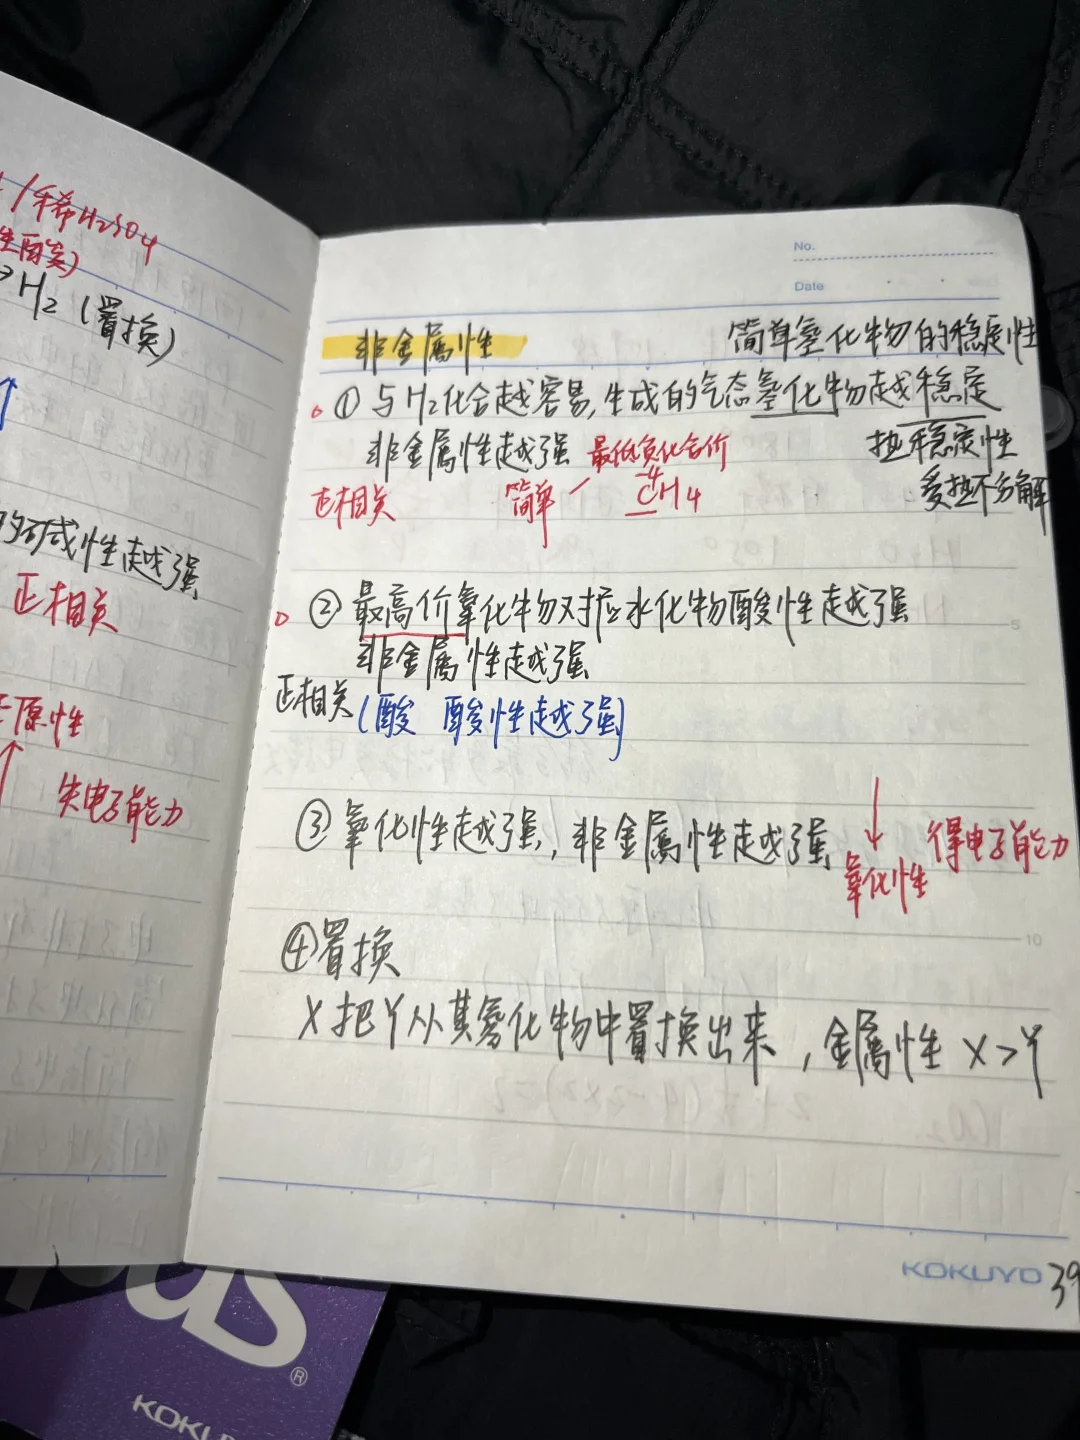 /稀H₂SO₄
生酸类)
→H₂(置换)
的碱性越强
正相关
还原性
失电子能力
No.
Date
非金属性
简单氢化物的稳定性
①与H₂化合越容易,生成的气态氢化物越稳定
非金属性越强
最低负化合价
热稳定性
正相关
简单
-4
CH₄
受热不分解
②最高价氧化物对应水化物酸性越强
5
非金属性越强
正相关(酸 酸性越强)
③氧化性越强,非金属性越强
氧化性
得电子能力
④置换
10
X把Y从其氢化物中置换出来,金属性X>Y
KOKUYO 39
pus®
KOKU